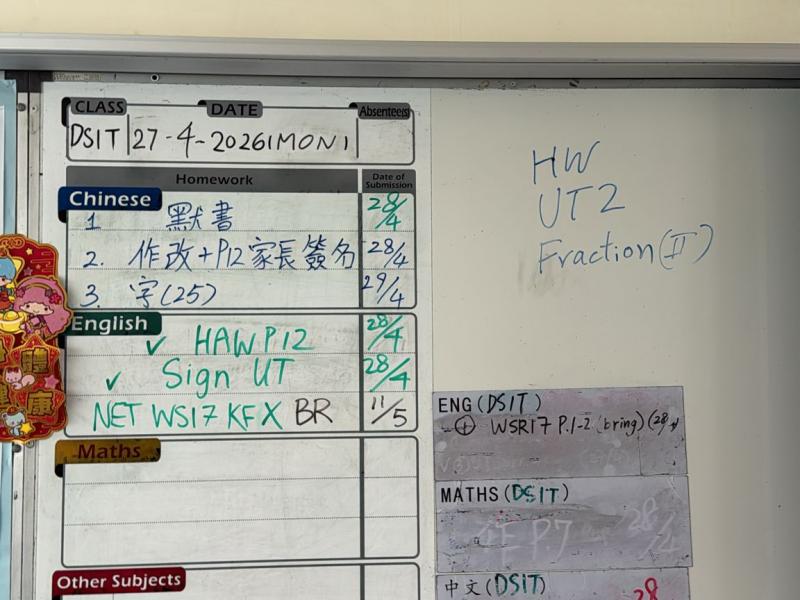 CLASS DATE Absentee(s)
DSIT 27-4-2026(MON)
Homework Date of Submission
Chinese
1 默書 28/4
2. 作改+P12家長簽名 28/4
3. 字(25) 29/4
English
✓ HAW P12 28/4
✓ Sign UT 28/4
NET WS17 KFX BR 11/5
Maths
Other Subjects
HW
UT2
Fraction(II)
ENG (DSIT)
WSR17 P.1-2 (bring) (28/4)
MATHS (DSIT)
作 P.7 28/4
中文(DSIT)
28
健康